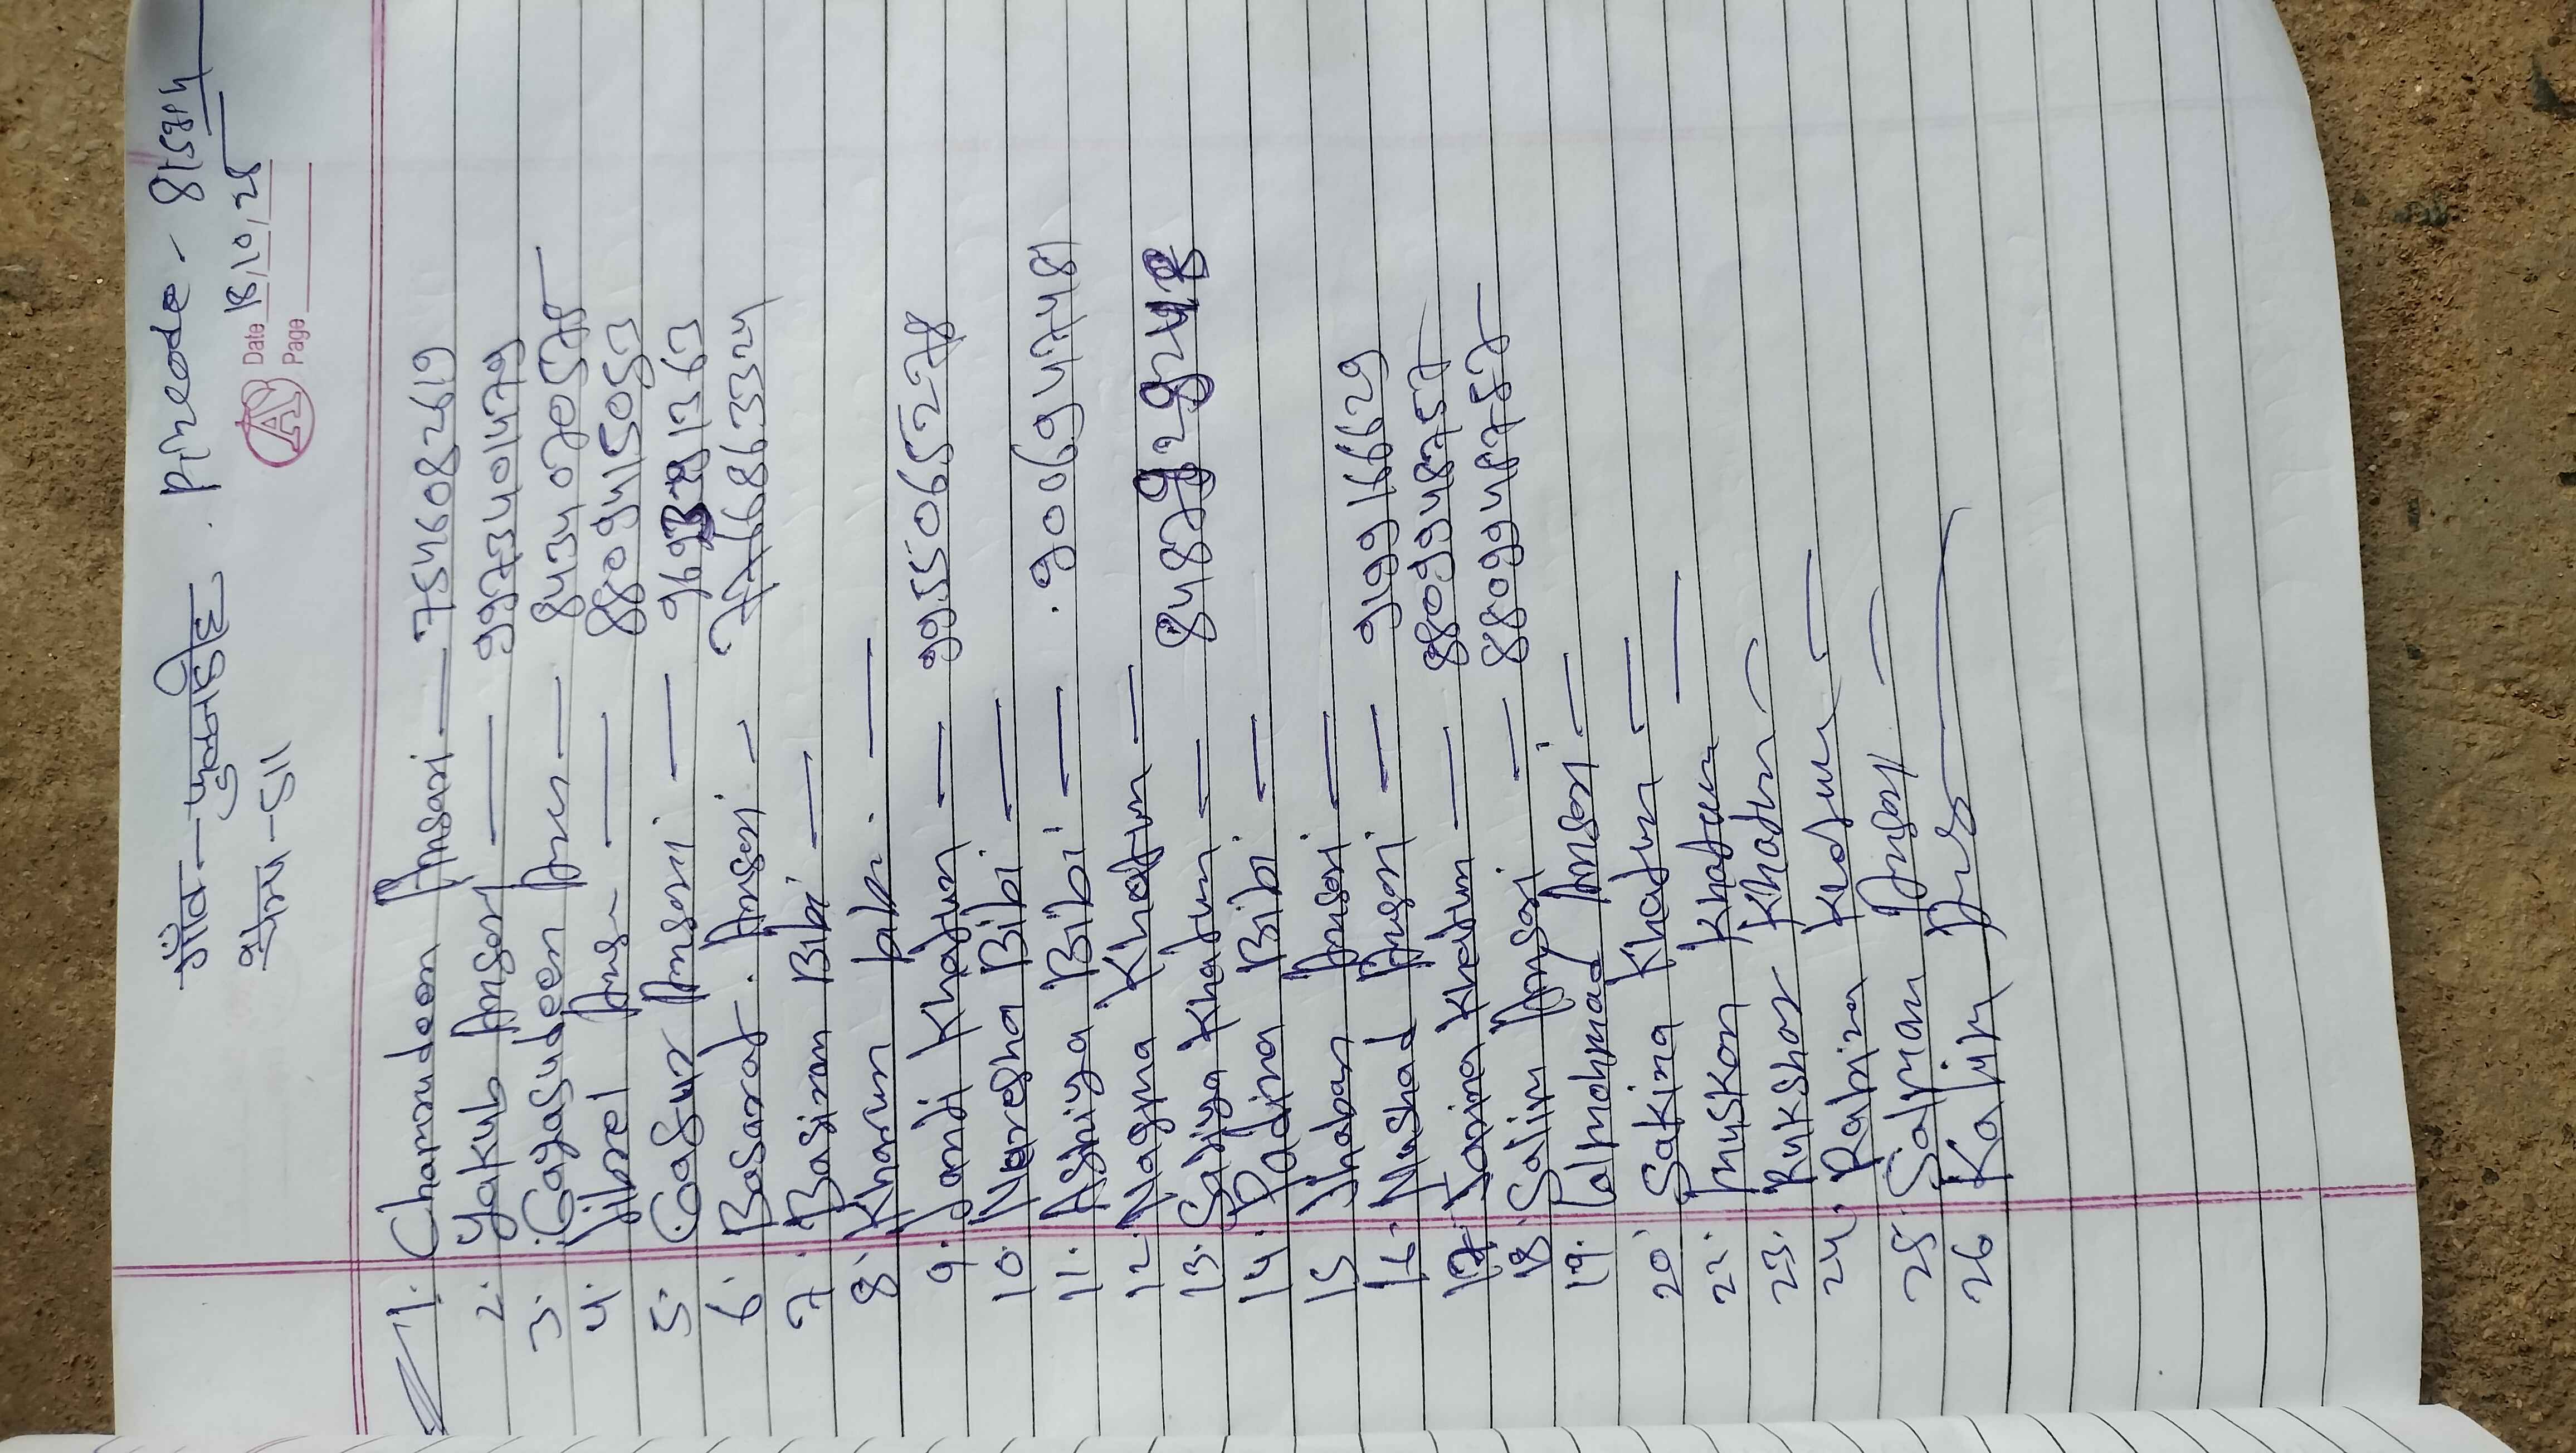 गाँव - फुलजहिह . Pincode - 815314
थाना - 511
Date 18/10/25
Page
1. Chamrudeen Ansari — 7546082619
2. Yakub Ansari — 9973401479
3. Gayasudeen — 8434070578
4. Jibrel — 8809415053
5. Gafur Ansari — 969381363
6. Basarat. Ansari — 7766863324
7. Basiran Bibi —
8. Kharun bibi. —
9. Jandi Khatun — 9955065278
10. Naresha Bibi —
11. Asniya Bibi — . 9006947481
12. Nagma Khatun —
13. Safiya Khatun — 8487992924
14. Padina Bibi —
15 Shaban Ansari —
16. Nushad Ansari — 9199166629
17. Jarina Khatun — 8809948757
18. Salim Ansari — 8809948757
19. Lalmohmad Ansari —
20. Sakina Khatun —
22. Muskan Khatun
23. Rukshar Khatun —
24. Rabina
25. Salman Ansari
26 Kalim